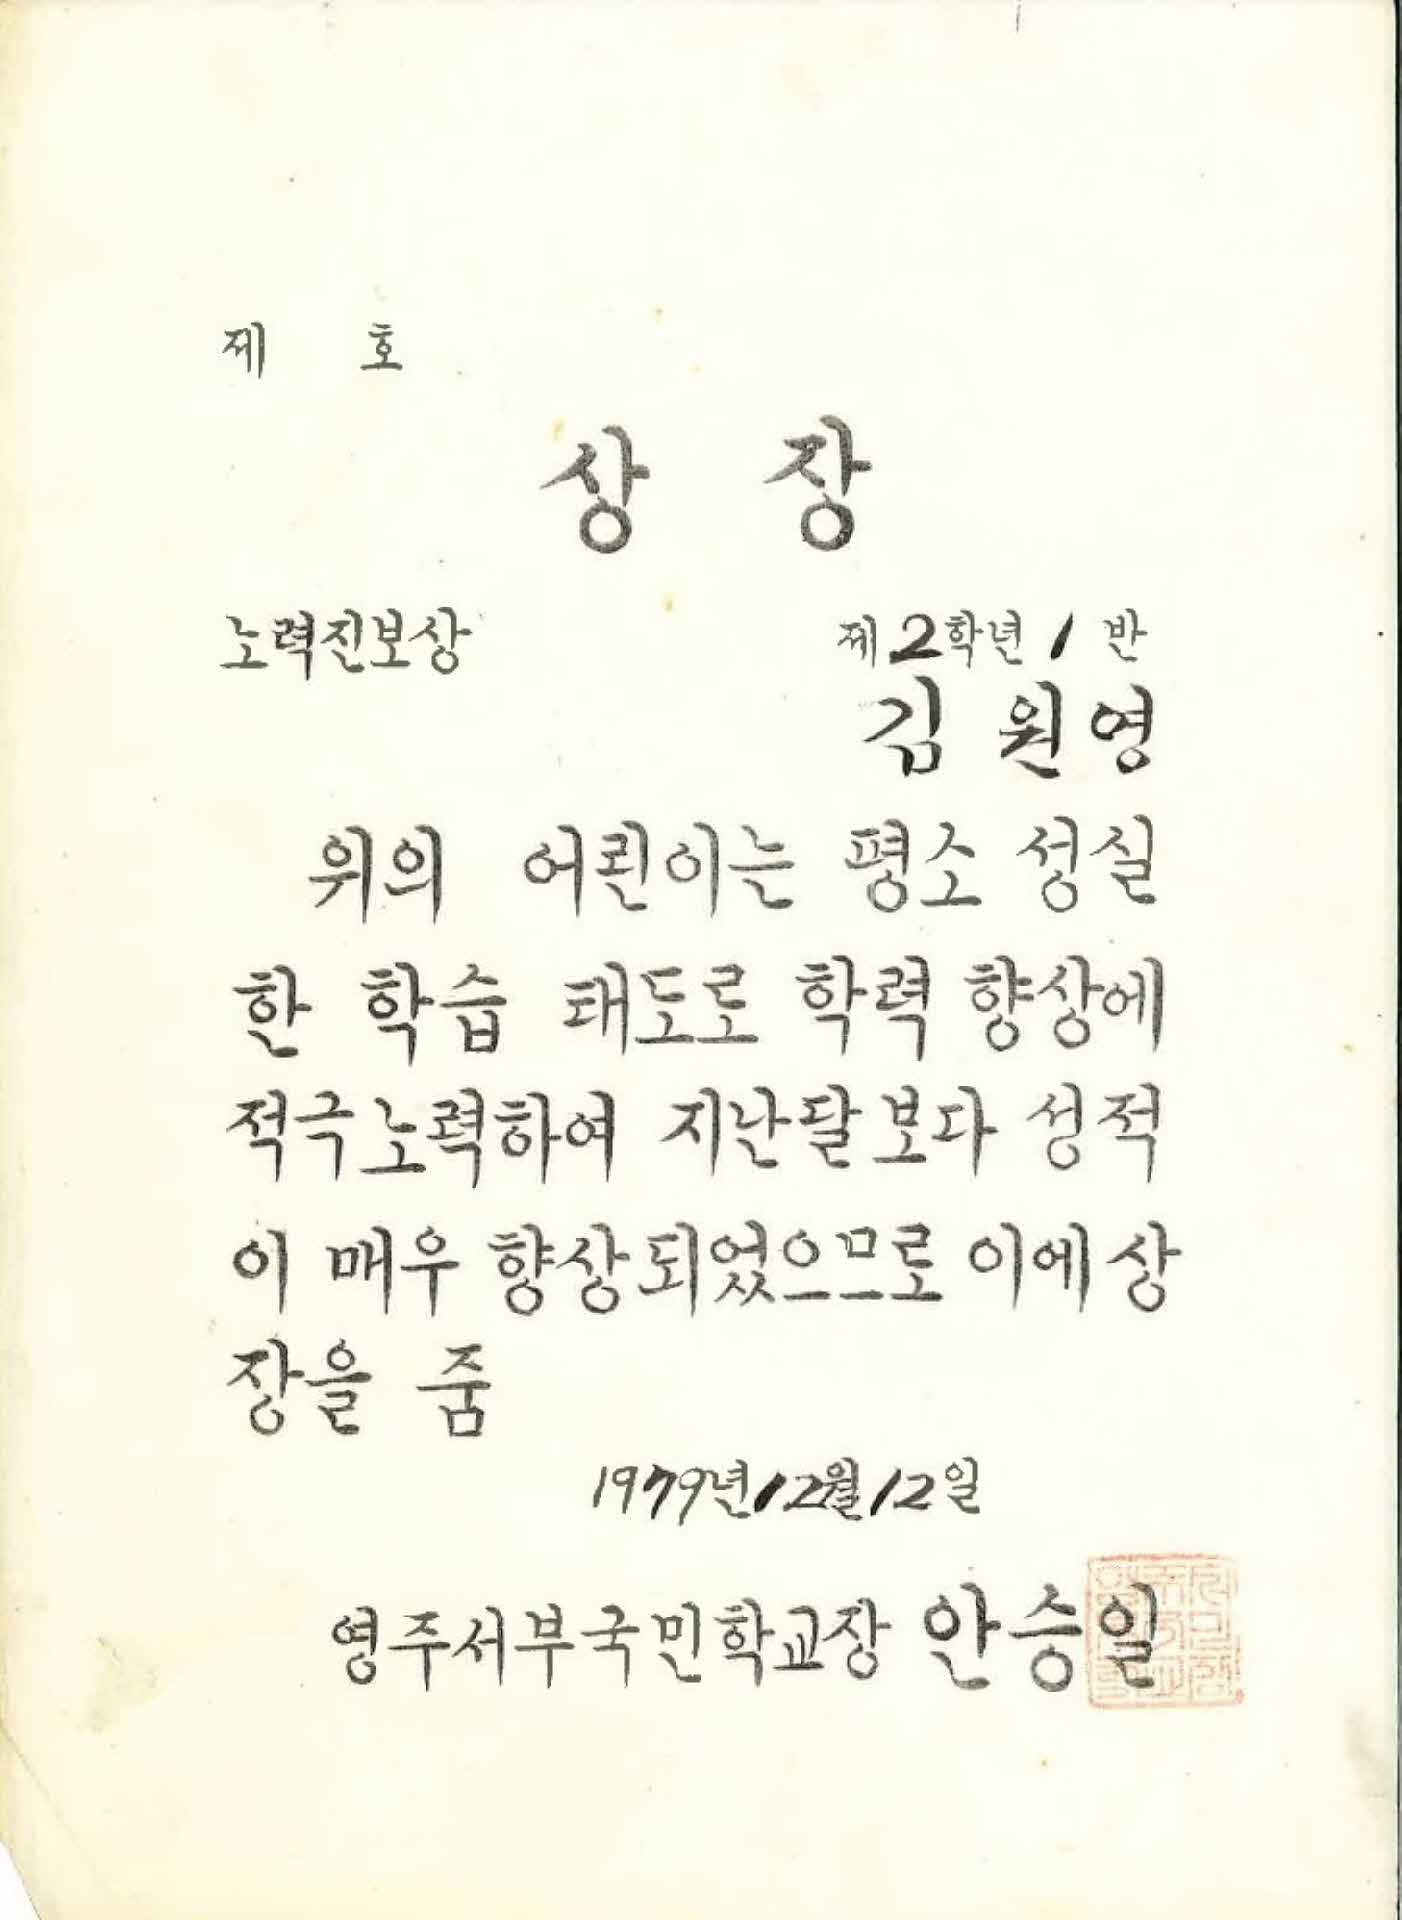 제 호
상 장
노력진보상
제2학년 1 반
김 원 영
위의 어린이는 평소 성실
한 학습 태도로 학력 향상에
적극노력하여 지난달보다 성적
이 매우 향상되었으므로 이에 상
장을 줌
1979년 12월 12일
영주서부국민학교장 안승일